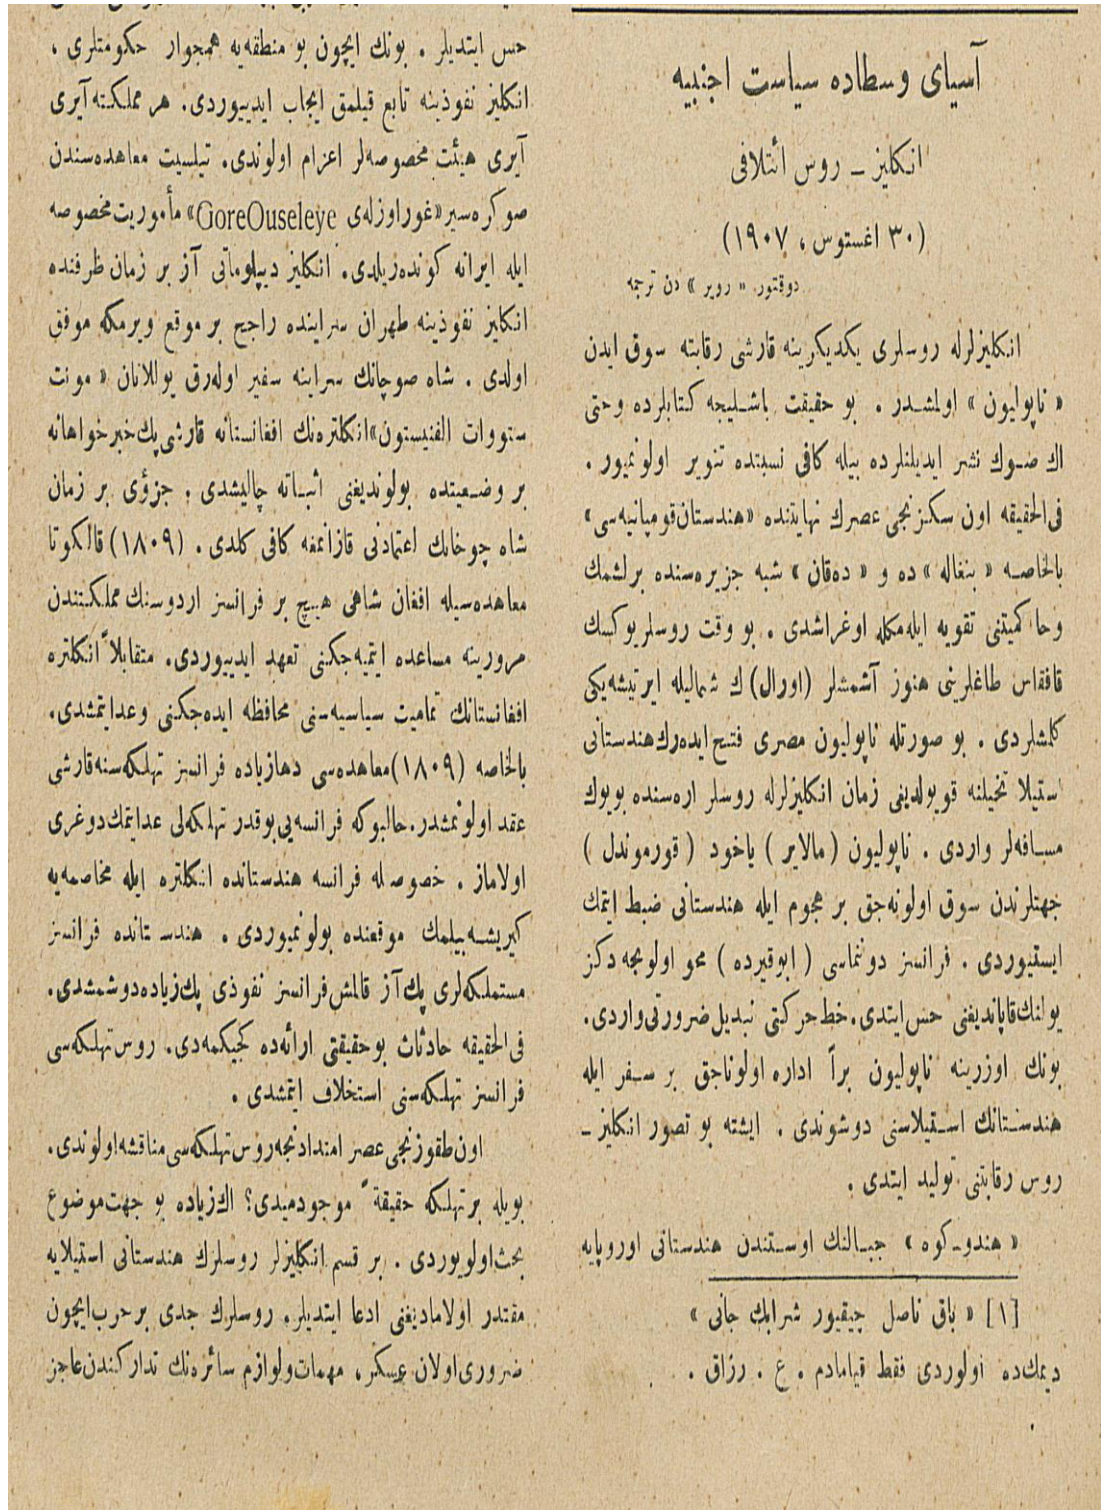 آسیای وسطاده سیاست اجنبیه
انكلیز ــ روس ائتلافی
(٣٠ اغستوس ، ١٩٠٧)
دوقتور « رویر » دن ترجمه
انكلیزلرله روسلری یكدیكرینه قارشی رقابته سوق ایدن
« ناپولیون » اولمشدر . بو حقیقت باشلیجه كتابلرده وحتی
اك صوك نشر ایدیلنلرده بیله كافی نسبتده تنویر اولونمیور .
فی‌الحقیقه اون سكزنجی عصرك نهایتنده «هندستان قومپانیه‌سی»
بالخاصه « بنغاله » ده و « ده‌قان » شبه جزیره‌سنده یرلشمك
وحاكمیتنی تقویه ایله‌مكله اوغراشدی . بو وقت روسلریوكسك
قافقاس طاغلرینی هنوز آشمشلر (اورال) ك شمالیله ایرتیشه‌یكی
كلمشلردی . بو صورتله ناپولیون مصری فتح ایده‌رك هندستانی
استیلا تخیلنه قویولدیغی زمان انكلیزلرله روسلر اره‌سنده بویوك
مسافه‌لر واردی . ناپولیون ( مالابر ) یاخود ( قورموندل )
جهتلرندن سوق اولونه‌جق بر هجوم ایله هندستانی ضبط ایتمك
ایستیوردی . فرانسز دوننماسی ( ابوقیرده ) محو اولونجه دكز
یولنك قاپاندیغنی حس ایتدی. خط حركتی تبدیل ضرورتی واردی.
بونك اوزرینه ناپولیون براً اداره اولوناجق بر سفر ایله
هندستانك استیلاسنی دوشوندی . ایشته بو تصور انكلیز ــ
روس رقابتنی تولید ایتدی .
« هندو-كوه » جبالنك اوستندن هندستانی اوروپایه
[١] « باقی ناصل چیقیور شرابك جانی »
دیمك‌ده اولوردی فقط قیامادم . ع . رزاق .
حس ایتدیلر . بونك ایچون بو منطقه‌یه همجوار حكومتلری ،
انكلیز نفوذینه تابع قیلمق ایجاب ایدییوردی. هر مملكته آیری
آیری هیئت مخصوصه‌لر اعزام اولوندی. تیلسیت معاهده‌سندن
صوكره سیر «غوراوزله‌ی GoreOuseleye» مأموریت مخصوصه
ایله ایرانه كونده‌ریلدی. انكلیز دیپلوماتی آز بر زمان ظرفنده
انكلیز نفوذینه طهران سراینده راجح بر موقع ویرمكه موفق
اولدی . شاه صوجانك سراینه سفیر اوله‌رق یوللانان « مونت
ستووات الفنیستون» انكلتره‌نك افغانستانه قارشی پك خیرخواهانه
بر وضعیتده بولوندیغنی اثباته چالیشدی . جزؤی بر زمان
شاه چوخانك اعتمادنی قازانمغه كافی كلدی . (١٨٠٩) قالكوتا
معاهده‌سیله افغان شاهی هیچ بر فرانسز اردوسنك مملكتندن
مرورینه مساعده ایتمیه‌جكنی تعهد ایدییوردی. متقابلاً انكلتره
افغانستانك تمامیت سیاسیه‌سنی محافظه ایده‌جكنی وعدایتمشدی.
بالخاصه (١٨٠٩) معاهده‌سی دها زیاده فرانسز تهلكه‌سنه قارشی
عقد اولونمشدر. حالبوكه فرانسه‌یی بوقدر تهلكه‌لی عدایتمك دوغری
اولاماز . خصوصله فرانسه هندستانده انكلتره ایله مخاصمه‌یه
كیریشه‌بیلمك موقعنده بولونمیوردی . هندستانده فرانسز
مستملكه‌لری پك آز قالمش فرانسز نفوذی پك زیاده دوشمشدی.
فی‌الحقیقه حادثات بوحقیقتی ارائه‌ده كجیكمه‌دی. روس تهلكه‌سی
فرانسز تهلكه‌سنی استخلاف ایتمشدی .
اون طقوزنجی عصر امتدادنجه روس تهلكه‌سی مناقشه اولوندی.
بویله بر تهلكه حقیقةً موجودمیدی؟ اك زیاده بو جهت موضوع
بحث اولویوردی . بر قسم انكلیزلر روسلرك هندستانی استیلایه
مقتدر اولامادیغنی ادعا ایتدیلر. روسلرك جدی بر حرب ایچون
ضروری اولان عسكر ، مهمات ولوازم سائره‌نك تداركندن عاجز